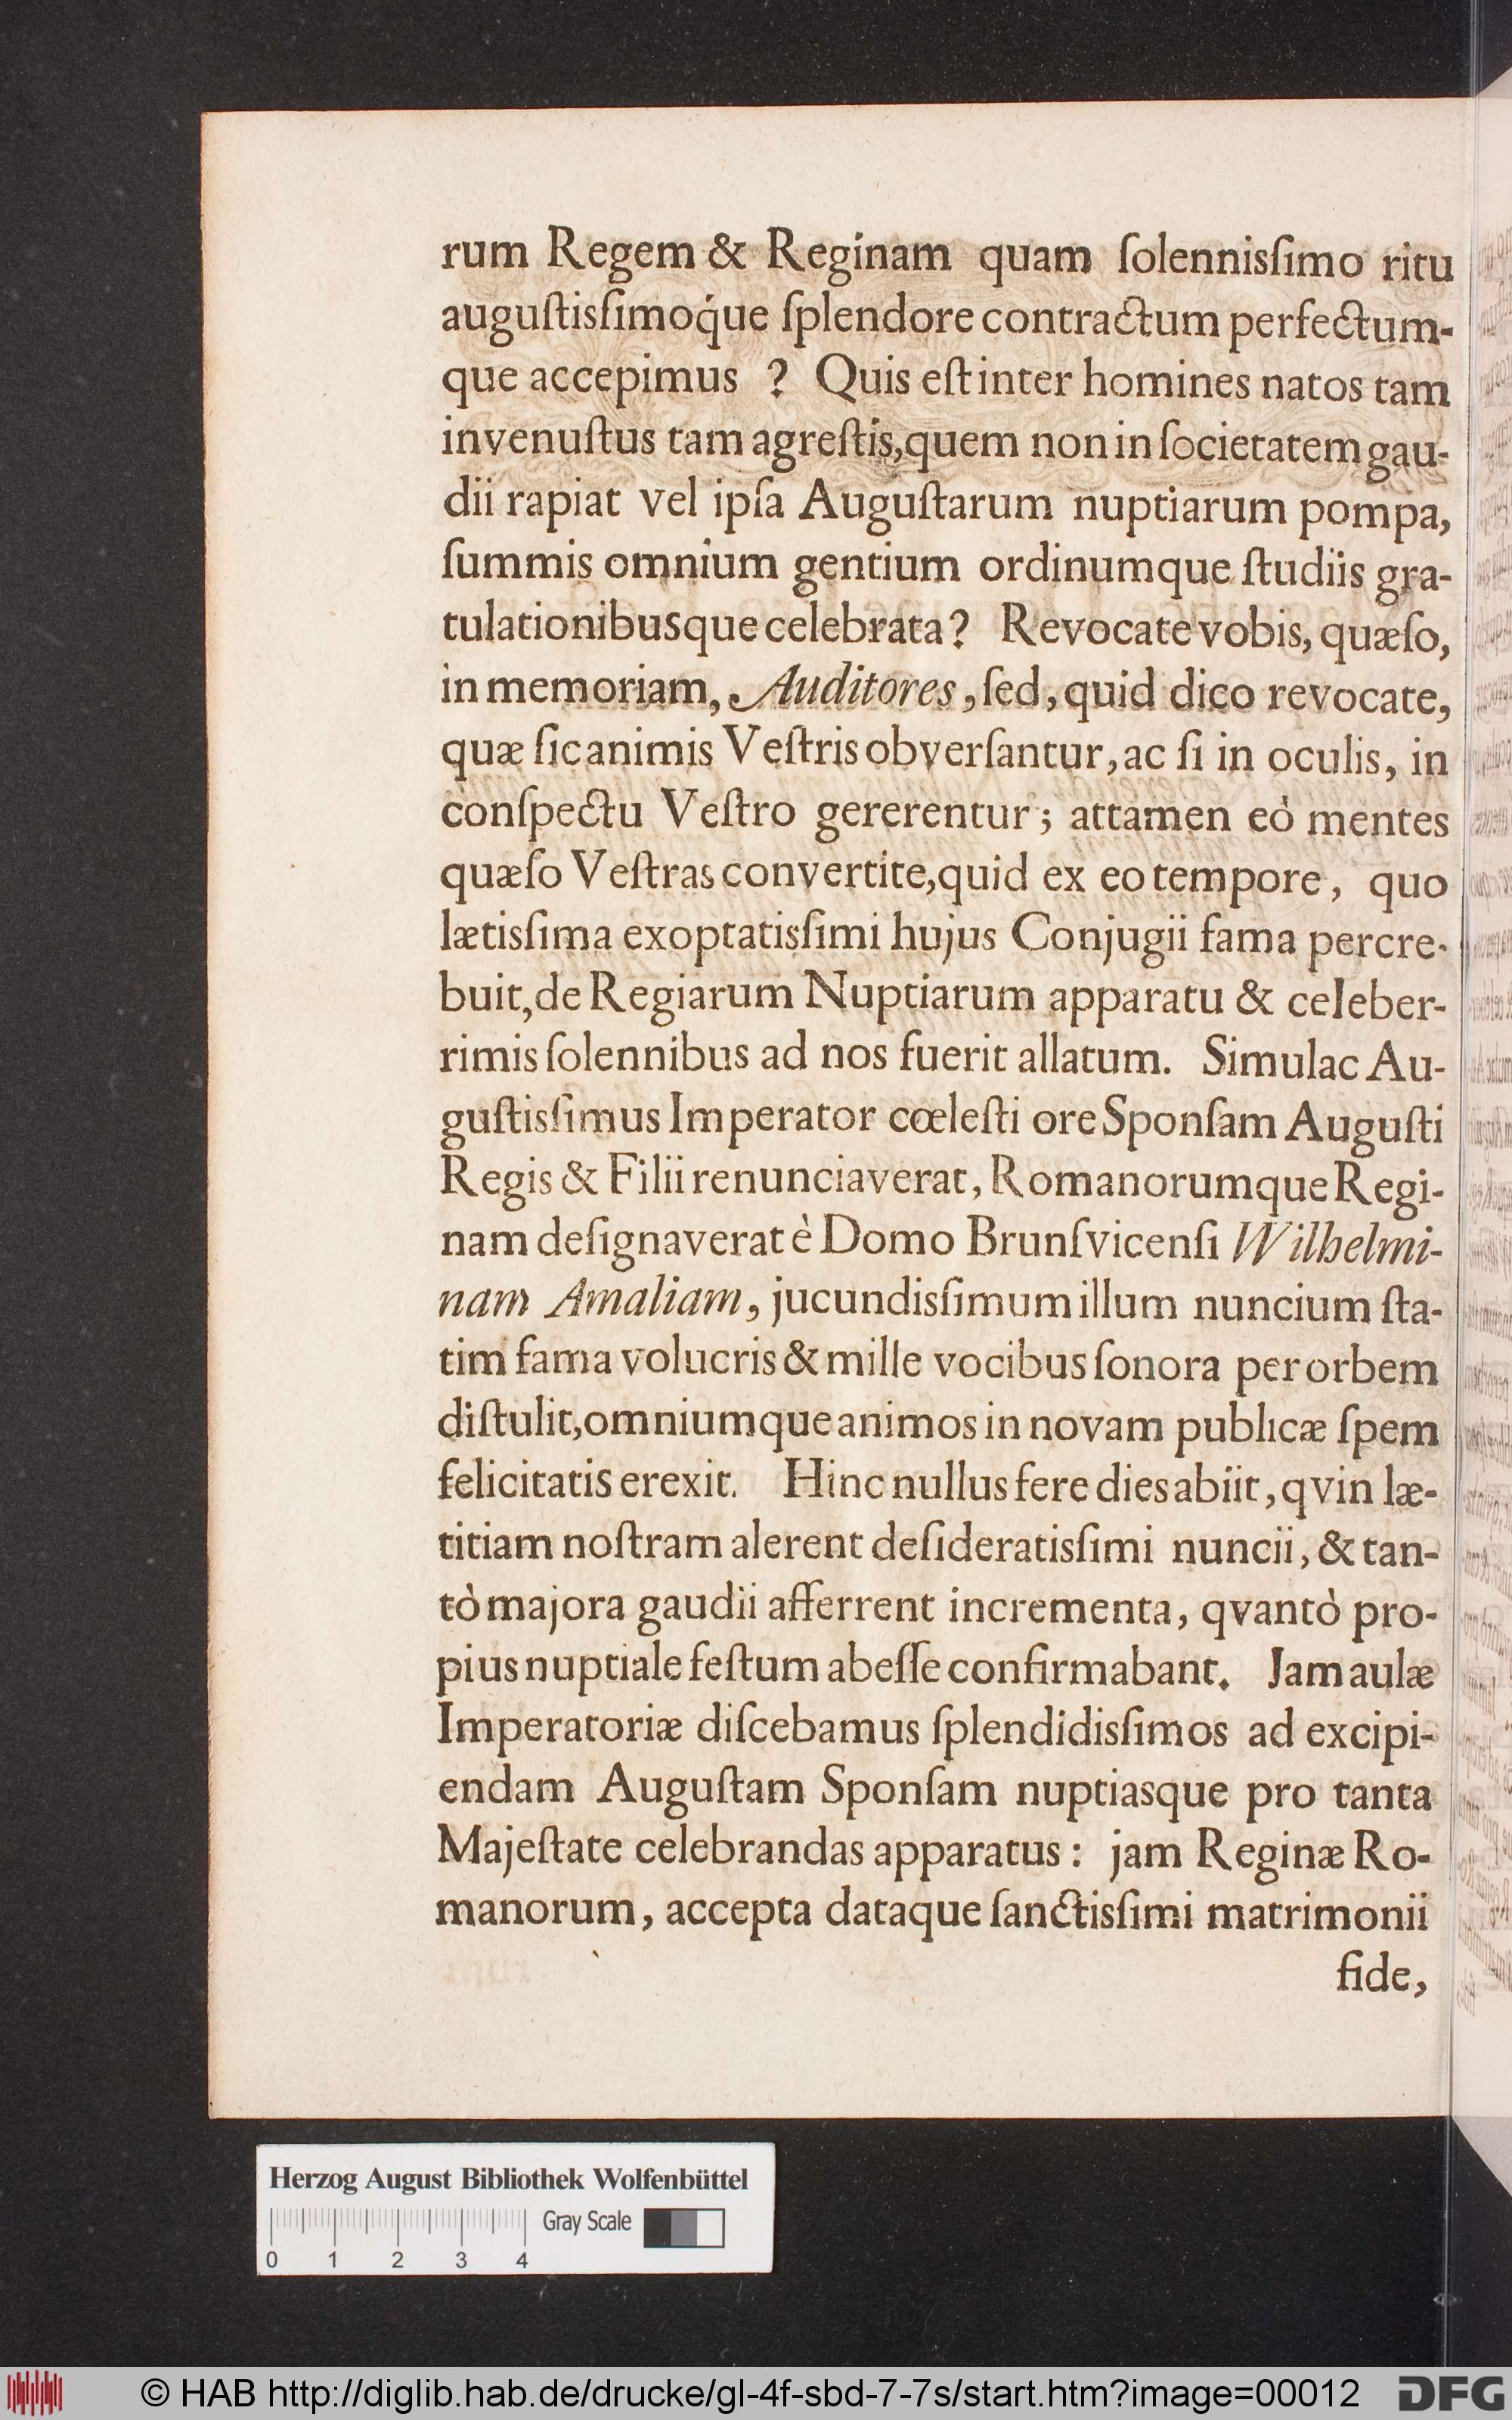 rum Regem & Reginam quam ſolennisſimo ritu
auguſtisſimoq́ue ſplendore contractum perfectum-
que accepimus ? Quis eſt inter homines natos tam
invenuſtus tam agreſtis, quem non in ſocietatem gau-
dii rapiat vel ipſa Auguſtarum nuptiarum pompa,
ſummis omnium gentium ordinumque ſtudiis gra-
tulationibusque celebrata? Revocate vobis, quæſo,
in memoriam, Auditores, ſed, quid dico revocate,
quæ ſic animis Veſtris obverſantur, ac ſi in oculis, in
conſpectu Veſtro gererentur; attamen eò mentes
quæſo Veſtras convertite, quid ex eo tempore, quo
lætisſima exoptatisſimi hujus Conjugii fama percre-
buit, de Regiarum Nuptiarum apparatu & celeber-
rimis ſolennibus ad nos fuerit allatum. Simulac Au-
guſtisſimus Imperator cœleſti ore Sponſam Auguſti
Regis & Filii renunciaverat, Romanorumque Regi-
nam deſignaverat è Domo Brunſvicenſi Wilhelmi-
nam Amaliam, jucundisſimum illum nuncium ſta-
tim fama volucris & mille vocibus ſonora per orbem
diſtulit, omniumque animos in novam publicæ ſpem
felicitatis erexit. Hinc nullus fere dies abiit, qvin læ-
titiam noſtram alerent deſideratisſimi nuncii, & tan-
tò majora gaudii afferrent incrementa, qvantò pro-
pius nuptiale feſtum abeſſe confirmabant. Jam aulæ
Imperatoriæ diſcebamus ſplendidisſimos ad excipi-
endam Auguſtam Sponſam nuptiasque pro tanta
Majeſtate celebrandas apparatus: jam Reginæ Ro-
manorum, accepta dataque ſanctisſimi matrimonii
fide,
Herzog August Bibliothek Wolfenbüttel
Gray Scale
0 1 2 3 4
© HAB http://diglib.hab.de/drucke/gl-4f-sbd-7-7s/start.htm?image=00012
DFG